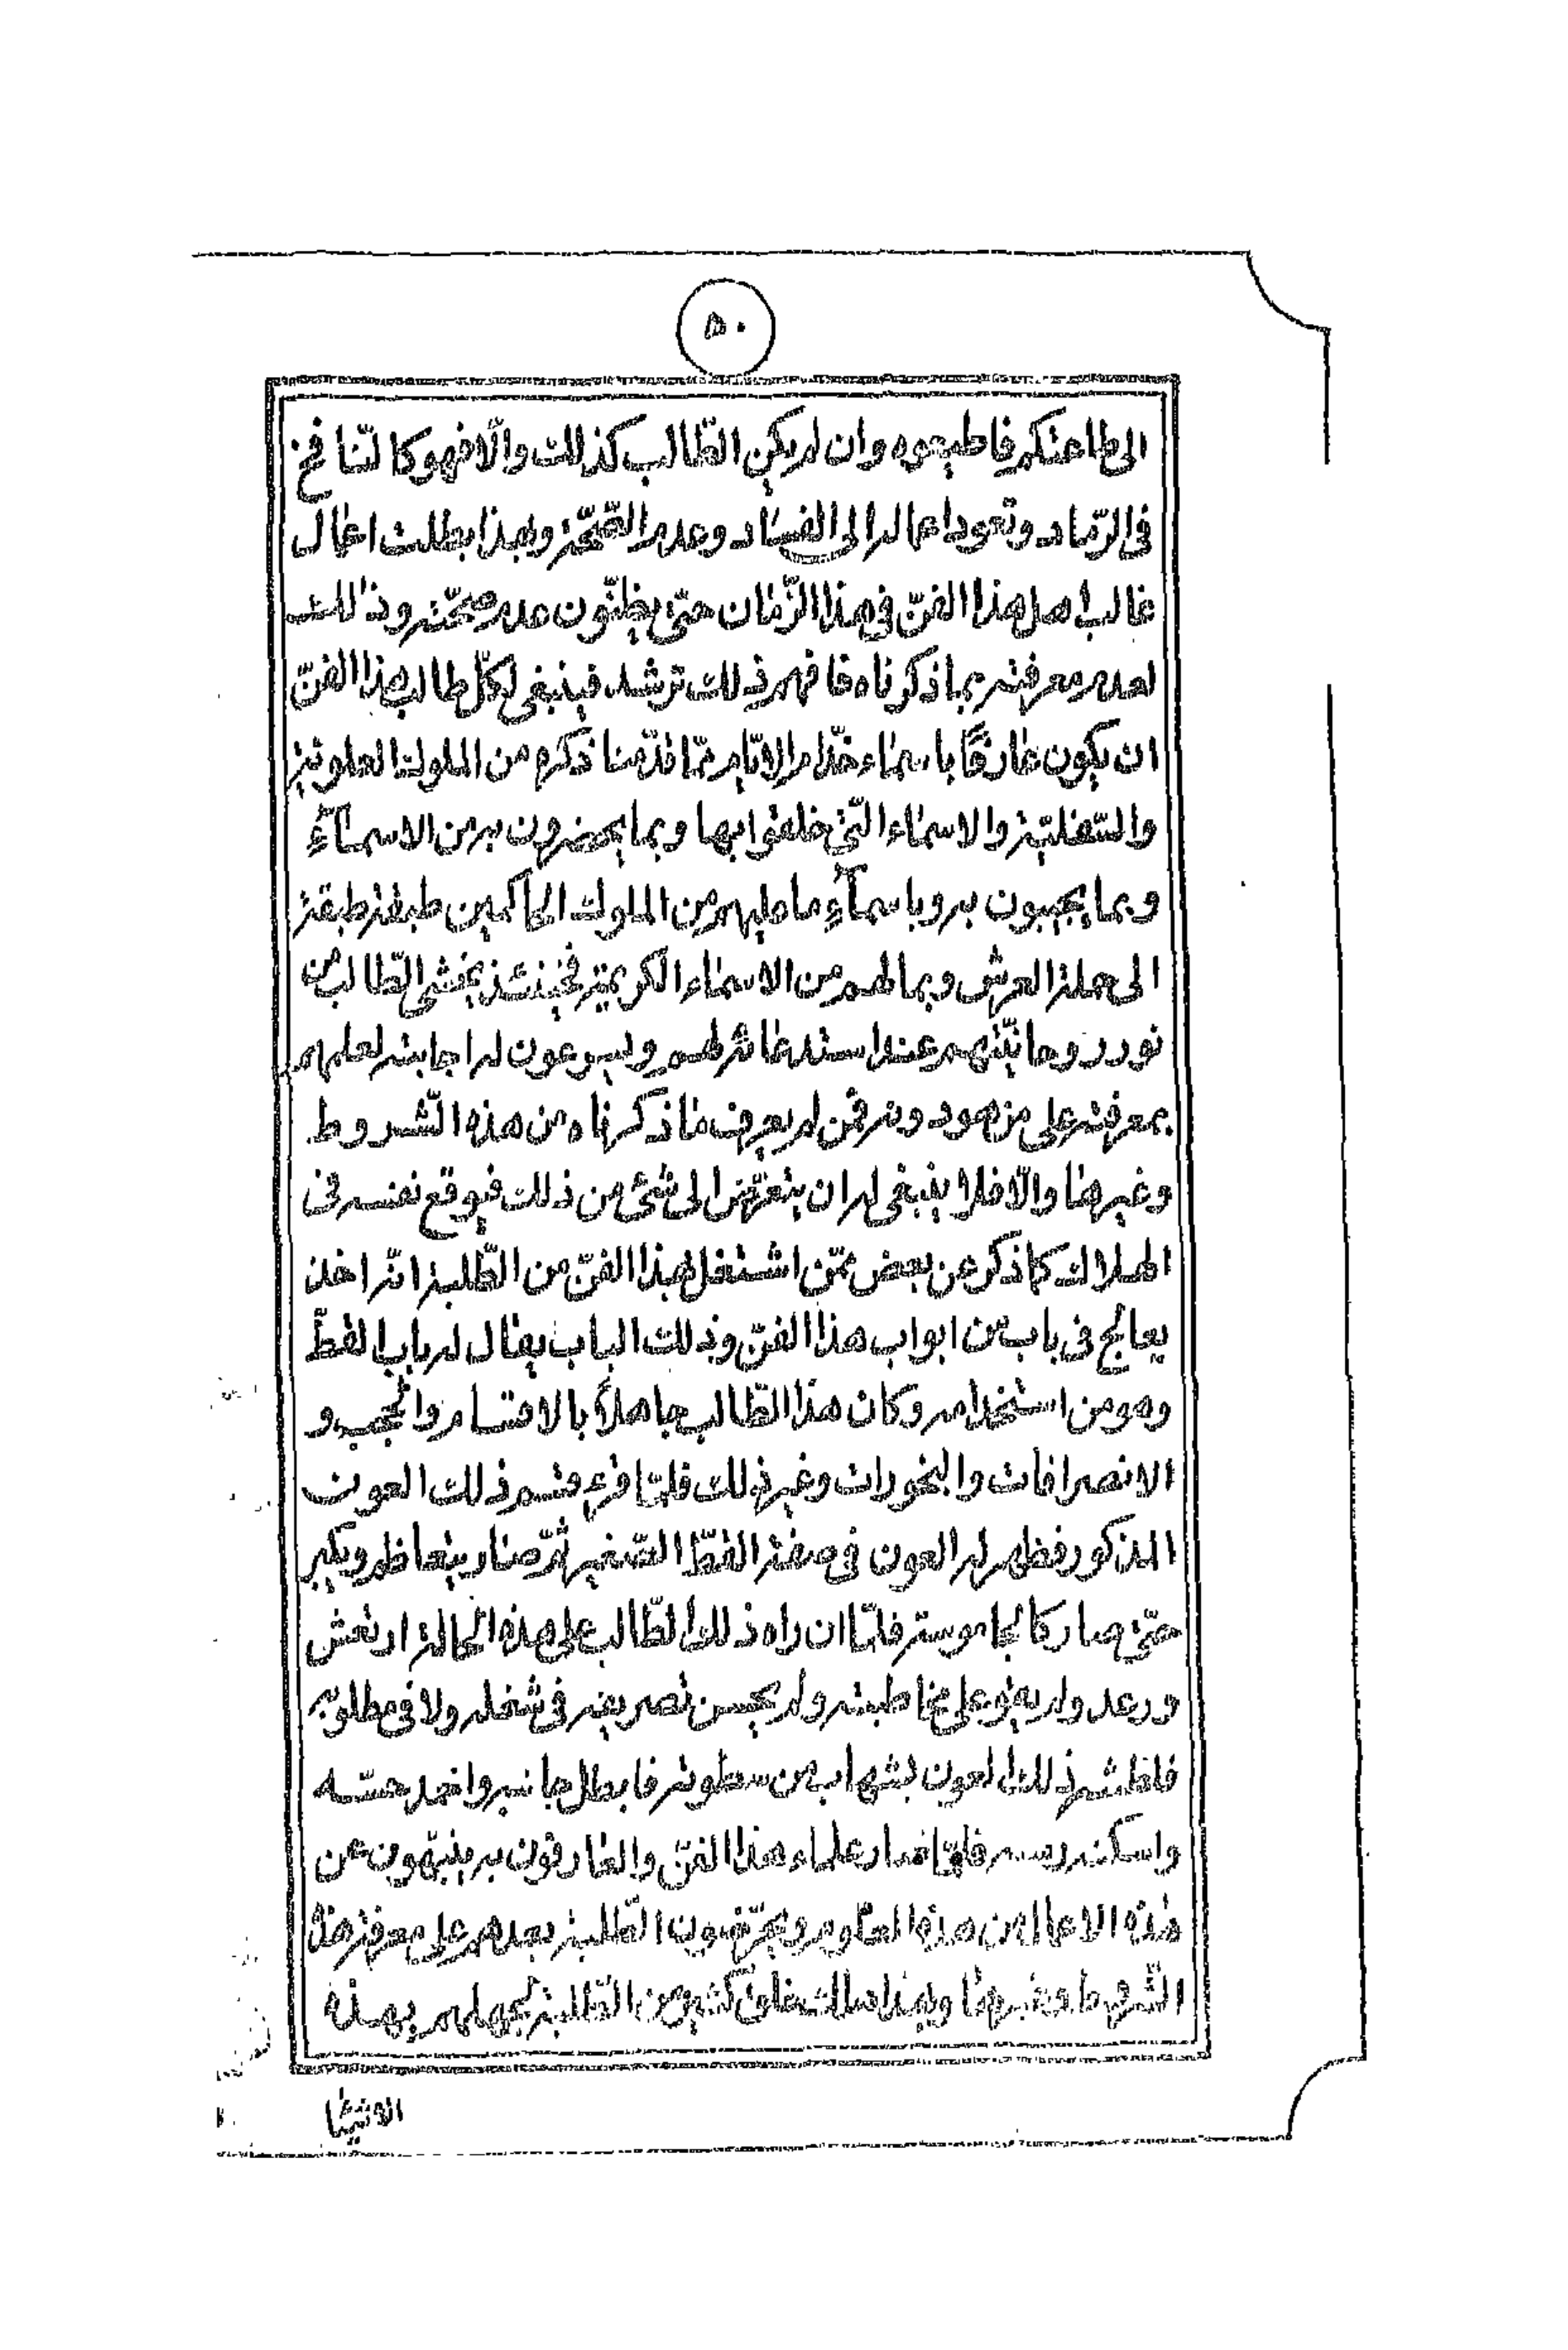 ۵۰
الى طاعتكم فاطيعوه وان لم يكن الطّالب كذلك والّا فهو كالنّافخ
فى الرّماد وتعود اعماله الى الفساد وعدم الصّحّة وبهذا بطلت اعمال
غالب اهل هذا الفنّ فى هذا الزّمان حتّى يظنّون عدم صحّته وذلك
لعدم معرفته بما ذكرناه فافهم ذلك ترشد فينبغى لكلّ طالب هذا الفنّ
ان يكون عارفًا باسماء خدّام الايّام ممّا قدّمنا ذكره من الملوك العلويّة
والسّفليّة والاسماء الّتى خلقوا بها وبما يحضرون به من الاسمآءِ
وبما يجيبون به وباسمآءِ ما عليهم من الملوك الحاكمين طبقة طبقة
الى حملة العرش وبما لهم من الاسماء الكريمة فحينئذ يخشى الطّالب من
نور روحانيّتهم عند استدعائه لهم ويسرعون له اجابته لعلمهم
بمعرفته على من هو دونه فمن لم يعرف ما ذكرناه من هذه الشّروط
وغيرها والّا فلا ينبغى له ان يتعرّض الى شئ من ذلك فيوقع نفسه فى
الهلاك كما ذكر عن بعض ممّن اشتغل بهذا الفنّ من الطّلبة انّه اخذ
يعالج فى باب من ابواب هذا الفنّ وذلك الباب يقال له باب القطّ
وهو من استخدامه وكان هذا الطّالب جاهلاً بالاقسام والحجب و
الانصرافات والبخورات وغير ذلك فلمّا قرء قسم ذلك العون
المذكور فظهر له العون فى صفة القطّ الصّغير ثمّ صار يتعاظم ويكبر
حتّى صار كالجاموسة فلمّا ان راه ذلك الطّالب على هذه الحالة ارتعش
ورعد ولم يقو على مخاطبته ولم يحسن تصريفه فى شغله ولا فى مطلوبه
ذلك العون بشهاب من سطوته فابطل جانبه واخمد حسّه
واسكنه رمسه علماء هذا الفنّ والعارفون به ينبّهون عن
هذه الاعمال من هذه العلوم ويحرّضون الطّلبة بعدهم على معرفة هذه
الشّروط وغيرها وبهذا هلك خلق كثير من الطّلبة لجهلهم بهذه
الاشيا